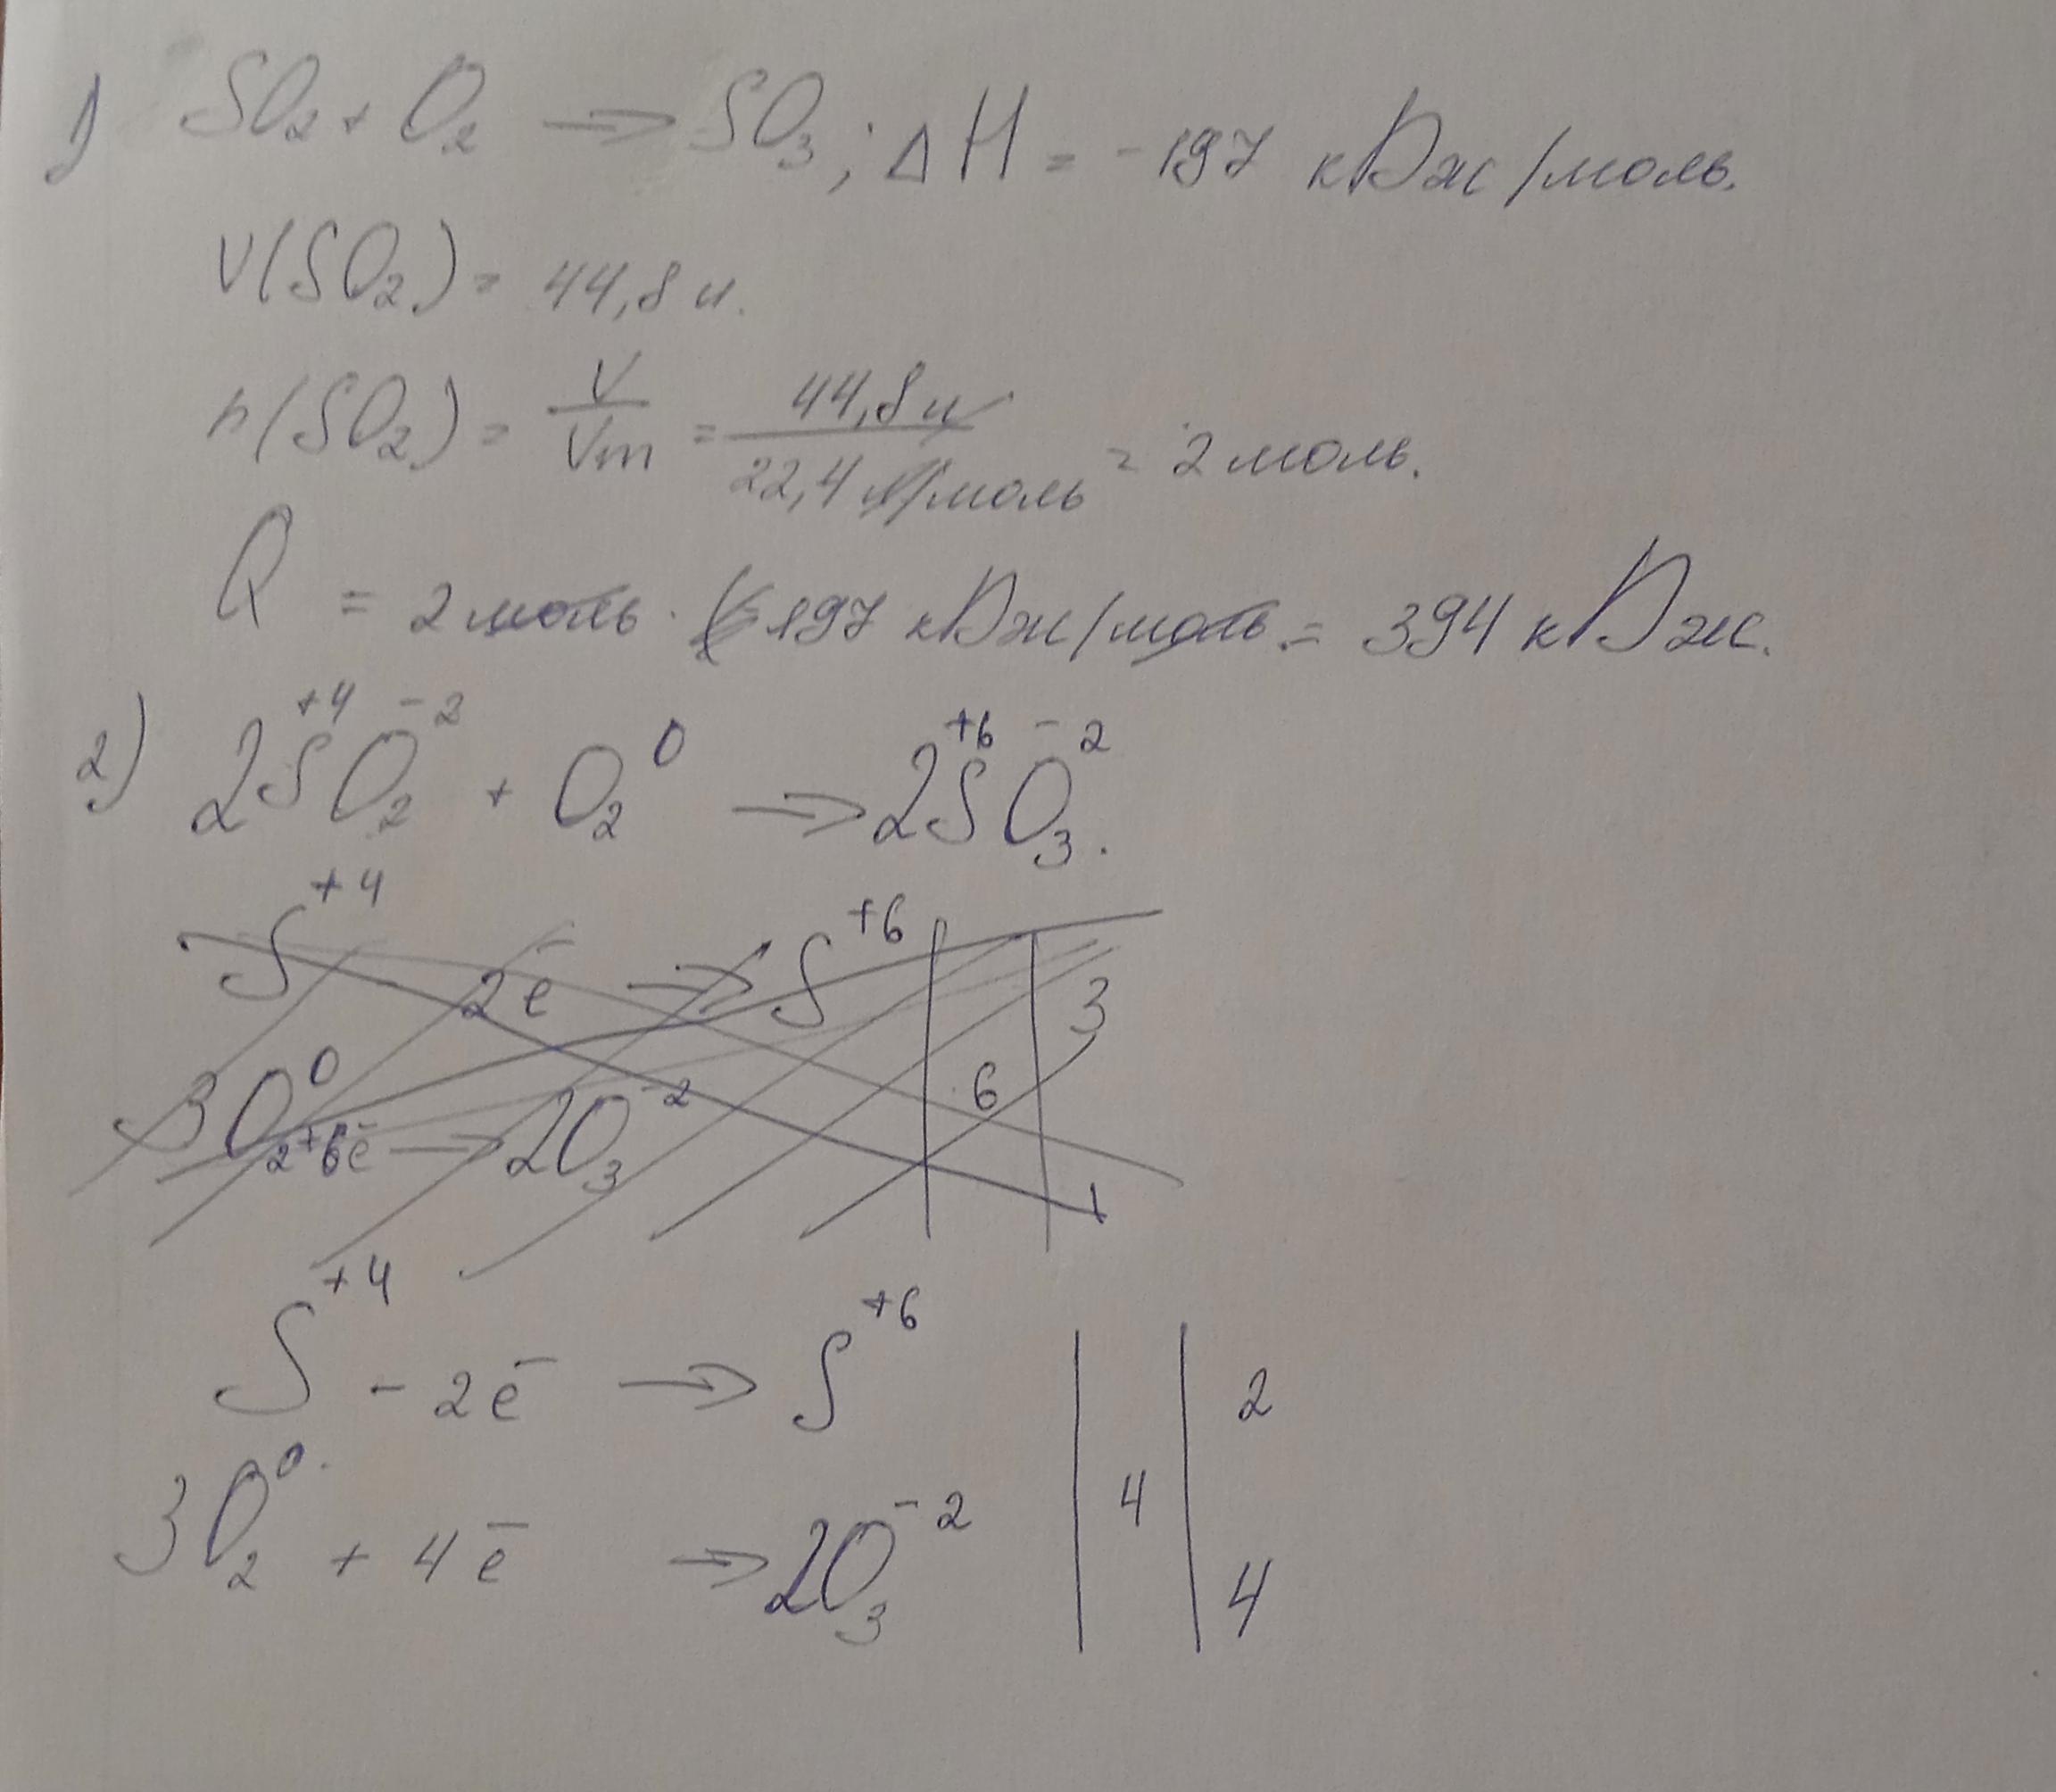 1) SO₂ + O₂ → SO₃; ΔH = -197 кДж/моль.
V(SO₂) = 44,8 л.
n(SO₂) = V/Vm = 44,8 л/22,4 л/моль = 2 моль.
Q = 2 моль · 197 кДж/моль = 394 кДж.
2) 2S⁺⁴O₂⁻² + O₂⁰ → 2S⁺⁶O₃⁻².
S⁺⁴ 2ē → S⁺⁶ | | 3
3O₂⁰ + 6ē → 2O₃⁻² | 6 | 1
S⁺⁴ - 2ē → S⁺⁶ | | 2
3O₂⁰ + 4ē → 2O₃⁻² | 4 | 4